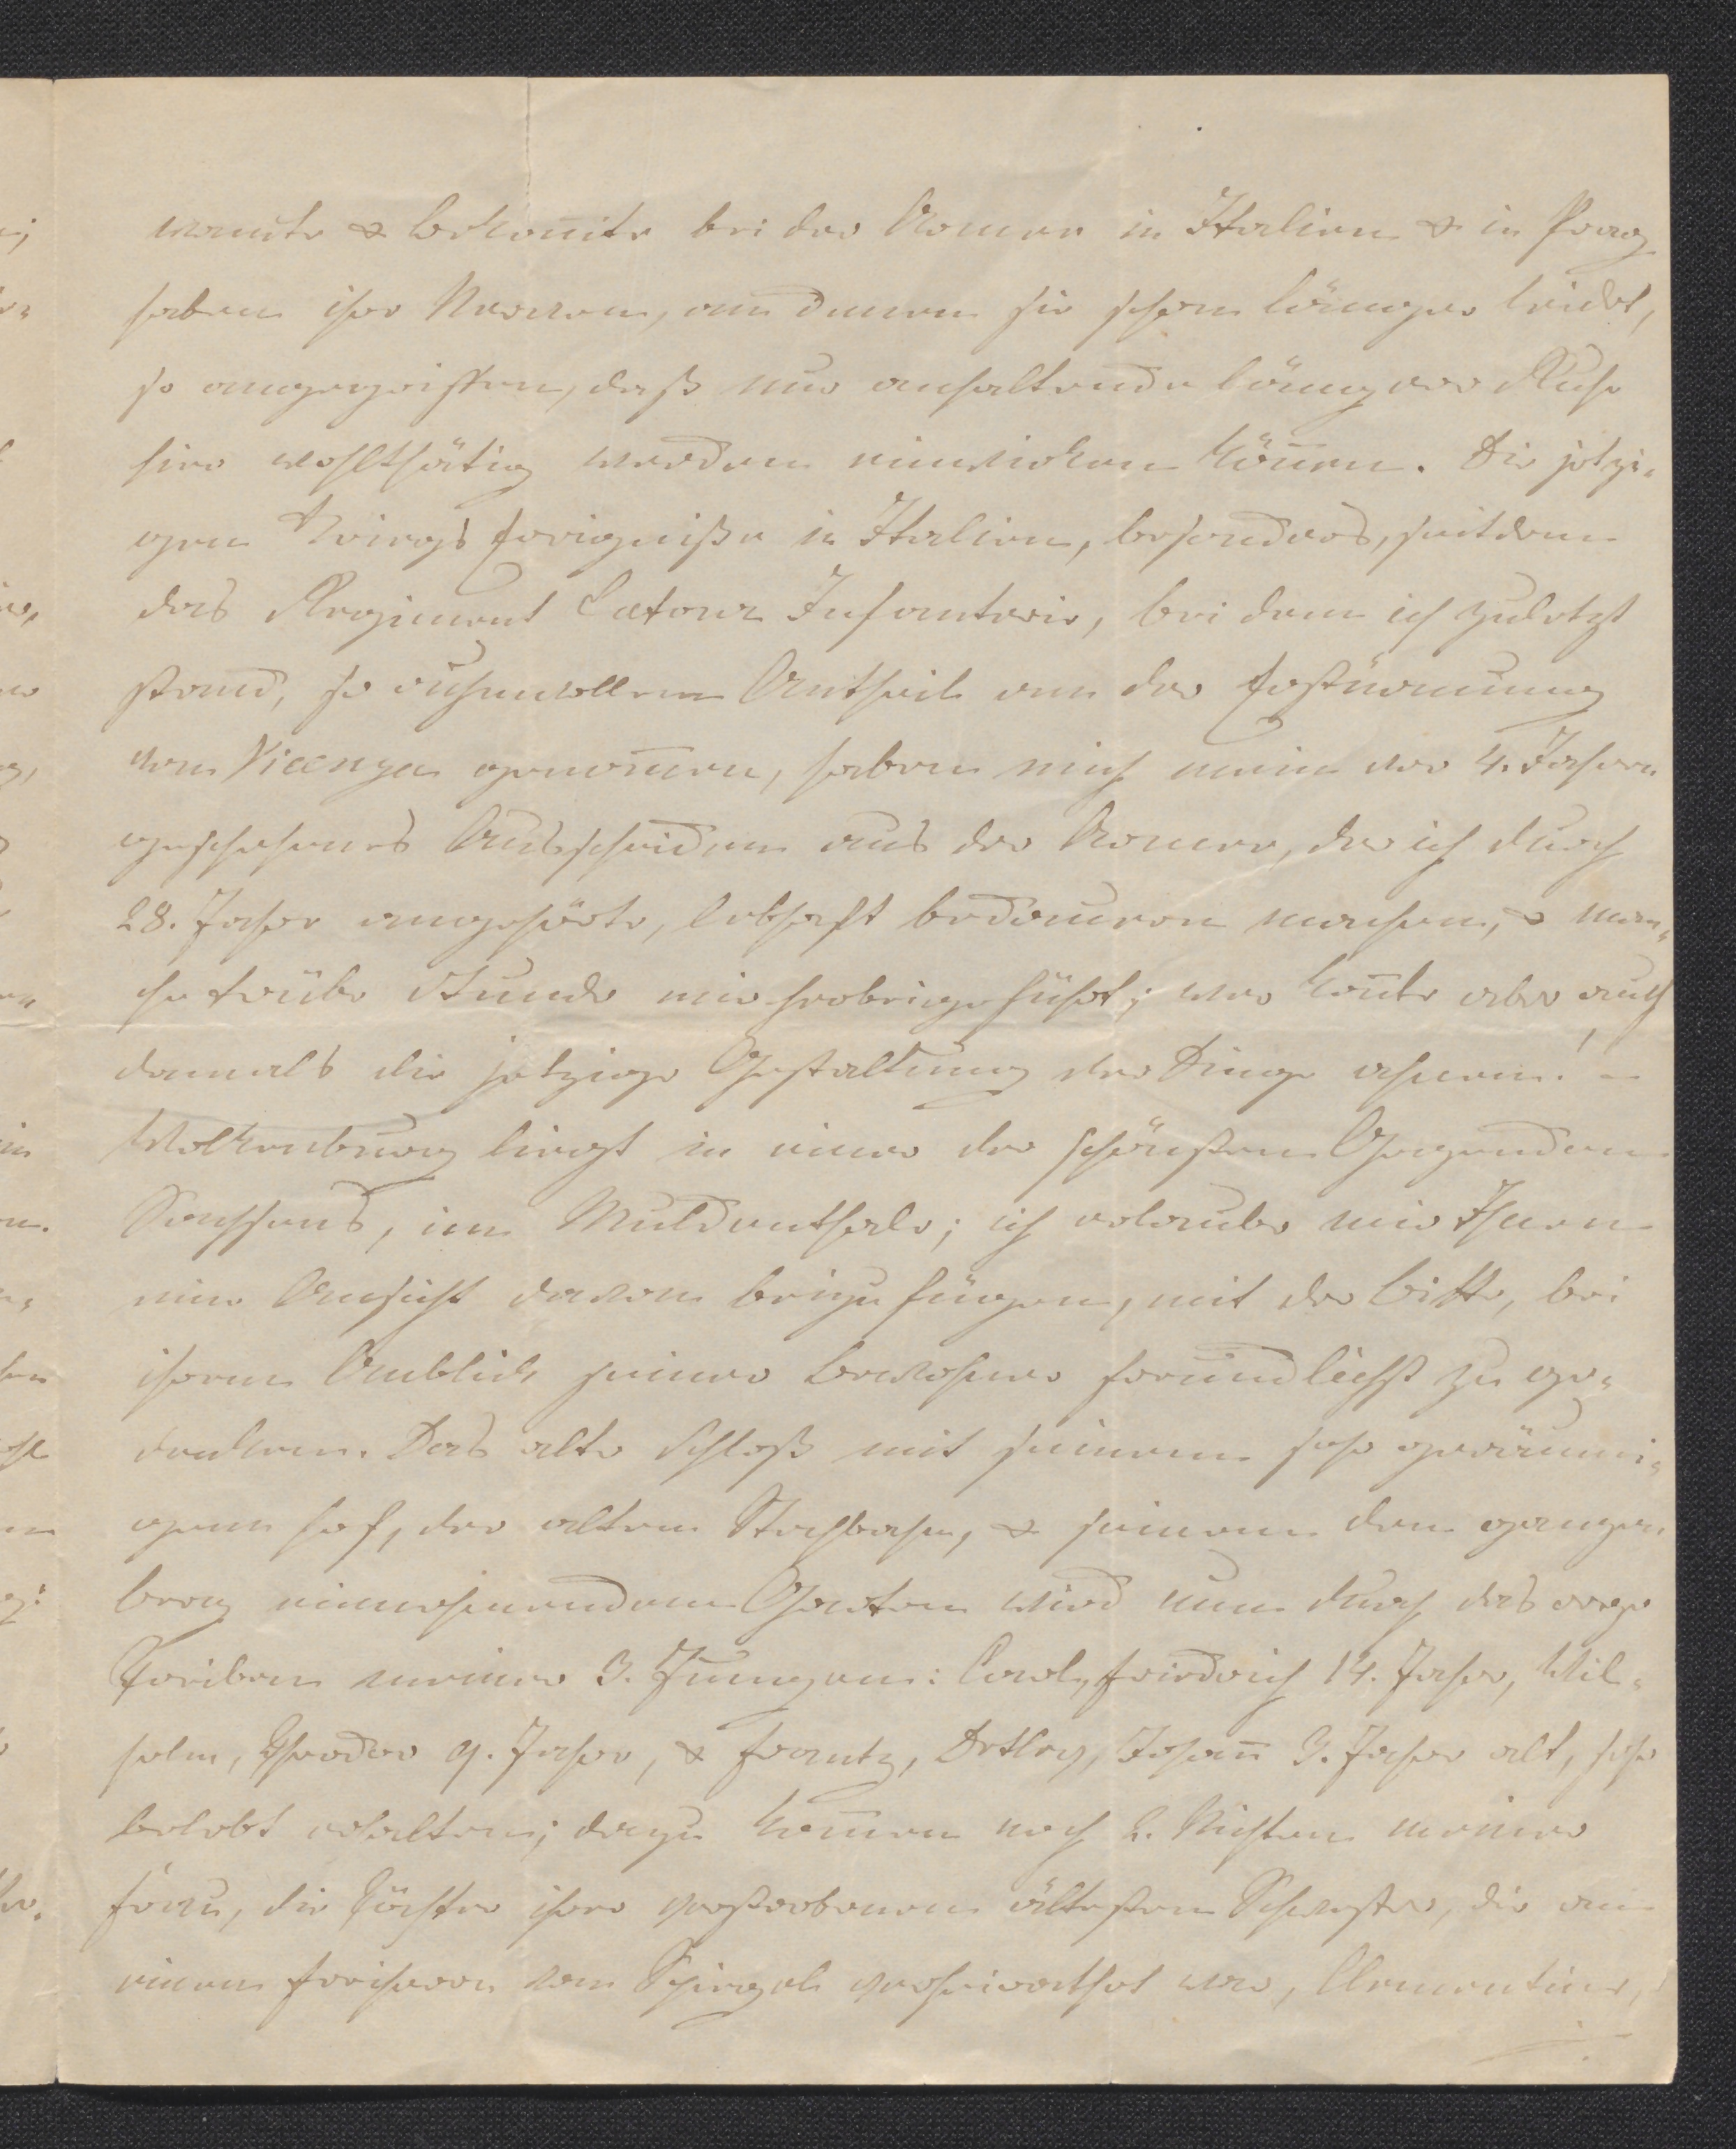 wandte & bekan̄te bei der Armee in Italien & in Prag
haben ihre Nerven, an denen sie schon länger leidet,
so angegriffen, daß nur anhaltende längere Ruhe
hier wohlthätig werden einwirken kön̄en. Die jetzi-
gen Kriegs Ereigniße in Italien, besonders, seitdem
das Regiment Latour Infanterie, bei dem ich zuletzt
stand, so ruhmvollen Antheil an der Erstürmung
von Vicenza genom̄en, haben mich mein vor 4. Jahren
geschehenes Ausscheiden aus der Armee, der ich durch
28. Jahre angehörte, lebhaft bedauern machen, & man-
che trübe Stunde mir herbeigeführt; wer kon̄te aber auch
damals die jetzige Gestaltung der Dinge ahnen! –
Wolkenburg liegt in einer der schönsten Gegenden
Sachsens, im Muldenthale; ich erlaube mir Ihnen
eine Ansicht davon beizufügen, mit der Bitte, bei
ihrem Anblick seiner Bewohner freundlichst zu ge-
denken. Das alte Schloß mit seinem sehr geräumi-
gen Hof, der alten & seinem den ganzen
Berg einnehmenden Garten wird nun durch das rege
Treiben meiner 3. Jungen: Carl, Friedrich 14. Jahre, Wil-
helm, Theodor 9. Jahre, & Frantz, Detlev, Johan̄ 3. Jahre alt, sehr
belebt erhalten; dazu kom̄en noch 2. Nichten meiner
Frau, die Töchter ihrer verstorbenen ältesten Schwester, die an
einen Freiherrn von Spiegel verheirathet war, Clementine,